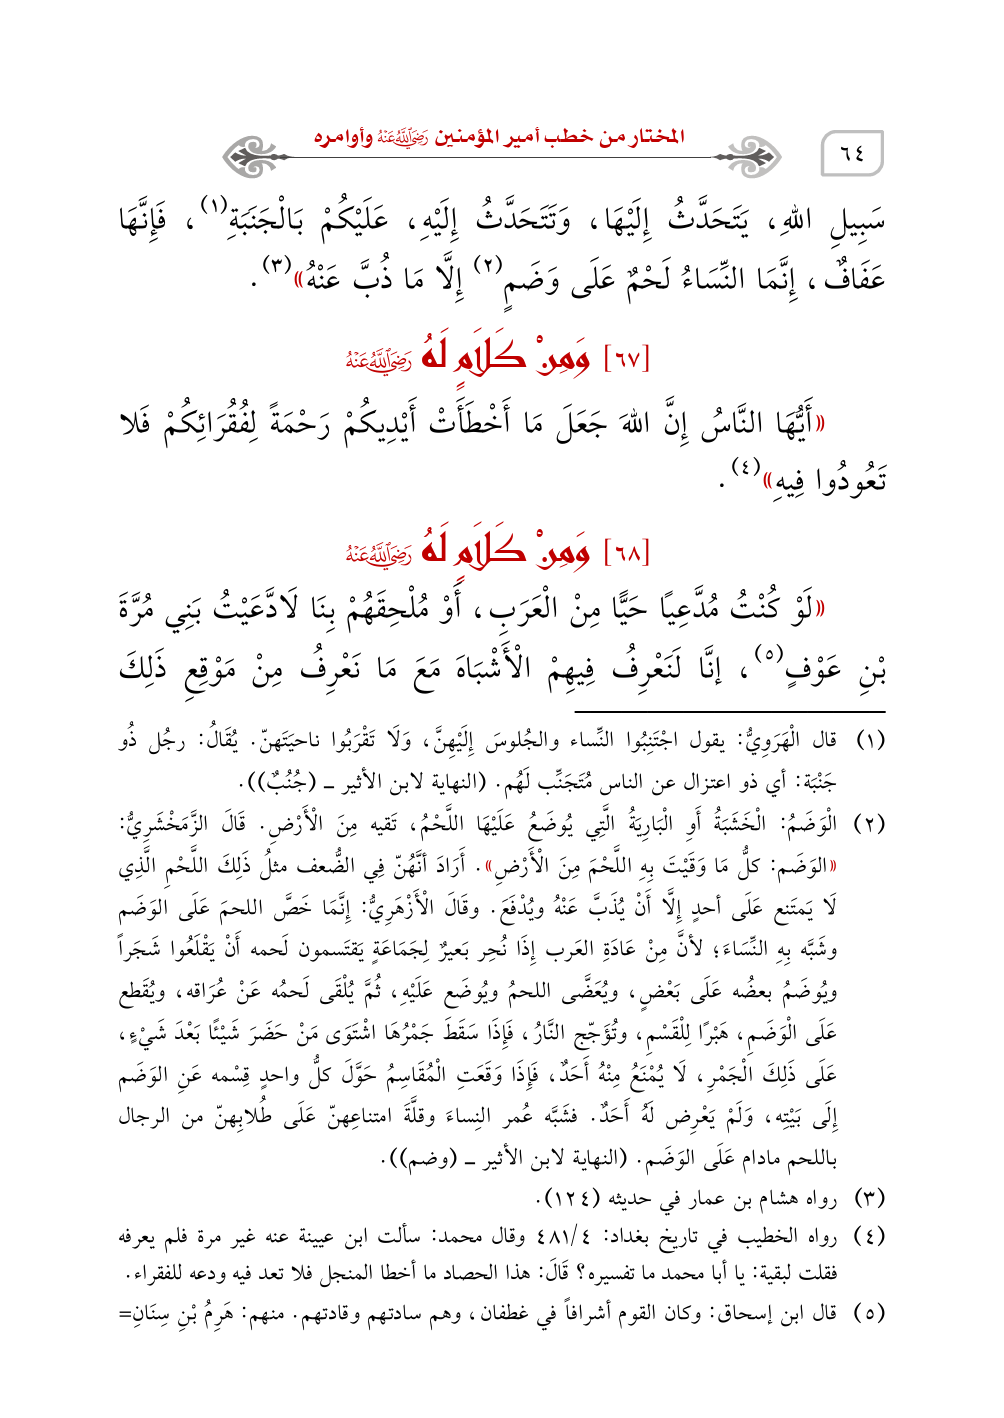 ٦٤
المختار من خطب أمير المؤمنين رَضِيَ اللَّهُ عَنْهُ وأوامره
سَبِيلِ اللهِ، يَتَحَدَّثُ إِلَيْهَا، وَتَتَحَدَّثُ إِلَيْهِ، عَلَيْكُمْ بَالْجَنَبَةِ(١)، فَإِنَّهَا
عَفَافٌ، إِنَّمَا النِّسَاءُ لَحْمٌ عَلَى وَضَمٍ(٢) إِلَّا مَا ذُبَّ عَنْهُ»(٣).
[٦٧] وَمِنْ كَلَامٍ لَهُ رَضِيَ اللَّهُ عَنْهُ
«أَيُّهَا النَّاسُ إِنَّ اللهَ جَعَلَ مَا أَخْطَأَتْ أَيْدِيكُمْ رَحْمَةً لِفُقُرَائِكُمْ فَلا
تَعُودُوا فِيهِ»(٤).
[٦٨] وَمِنْ كَلَامٍ لَهُ رَضِيَ اللَّهُ عَنْهُ
«لَوْ كُنْتُ مُدَّعِيًا حَيًّا مِنْ الْعَرَبِ، أَوْ مُلْحِقَهُمْ بِنَا لَادَّعَيْتُ بَنِي مُرَّةَ
بْنِ عَوْفٍ(٥)، إنَّا لَنَعْرِفُ فِيهِمْ الْأَشْبَاهَ مَعَ مَا نَعْرِفُ مِنْ مَوْقِعِ ذَلِكَ
(١) قال الْهَرَوِيُّ: يقول اجْتَنِبُوا النِّساء والجُلوسَ إِلَيْهِنَّ، وَلَا تَقْرَبُوا ناحيَتَهنّ. يُقَالُ: رجُل ذُو
جَنْبَة: أي ذو اعتزال عن الناس مُتَجَنِّب لَهُم. (النهاية لابن الأثير ـ (جُنُبٌ)).
(٢) الْوَضَمُ: الْخَشَبَةُ أَوِ الْبَارِيَةُ الَّتِي يُوضَعُ عَلَيْهَا اللَّحْمُ، تَقيه مِنَ الْأَرْضِ. قَالَ الزَّمَخْشَرِيُّ:
«الوَضَم: كلُّ مَا وَقَيْتَ بِهِ اللَّحْمَ مِنَ الْأَرْضِ». أَرَادَ أنَّهُنّ فِي الضُّعف مثلُ ذَلِكَ اللَّحْمِ الَّذِي
لَا يَمتَنع عَلَى أحدٍ إِلَّا أَنْ يُذَبَّ عَنْهُ ويُدْفَعَ. وقَالَ الْأَزْهَرِيُّ: إِنَّمَا خَصَّ اللحمَ عَلَى الوَضَم
وشَبَّه بِهِ النِّسَاءَ؛ لأنَّ مِنْ عَادَةِ العَرب إِذَا نُحِر بَعيرٌ لِجَمَاعَةٍ يَقتَسمون لَحمه أَنْ يَقْلَعُوا شَجَراً
ويُوضَمُ بعضُه عَلَى بَعْضٍ، ويُعَضَّى اللحمُ ويُوضَع عَلَيْهِ، ثُمَّ يُلْقَى لَحمُه عَنْ عُرَاقه، ويُقَطع
عَلَى الْوَضَمِ، هَبْرًا لِلْقَسْمِ، وتُؤَجّج النَّارُ، فَإِذَا سَقَطَ جَمْرُهَا اشْتَوَى مَنْ حَضَرَ شَيْئًا بَعْدَ شَيْءٍ،
عَلَى ذَلِكَ الْجَمْرِ، لَا يُمْنَعُ مِنْهُ أَحَدٌ، فَإِذَا وَقَعَتِ الْمُقَاسِمُ حَوَّلَ كلُّ واحدٍ قِسْمه عَنِ الوَضَم
إِلَى بَيْتِه، وَلَمْ يَعْرِض لَهُ أَحَدٌ. فشَبَّه عُمر النِساءَ وقلَّةَ امتناعِهنّ عَلَى طُلابِهنّ من الرجال
باللحم مادام عَلَى الوَضَم. (النهاية لابن الأثير ـ (وضم)).
(٣) رواه هشام بن عمار في حديثه (١٢٤).
(٤) رواه الخطيب في تاريخ بغداد: ٤٨١/٤ وقال محمد: سألت ابن عيينة عنه غير مرة فلم يعرفه
فقلت لبقية: يا أبا محمد ما تفسيره؟ قَالَ: هذا الحصاد ما أخطا المنجل فلا تعد فيه ودعه للفقراء.
(٥) قال ابن إسحاق: وكان القوم أشرافاً في غطفان، وهم سادتهم وقادتهم. منهم: هَرِمُ بْنِ سِنَانِ=